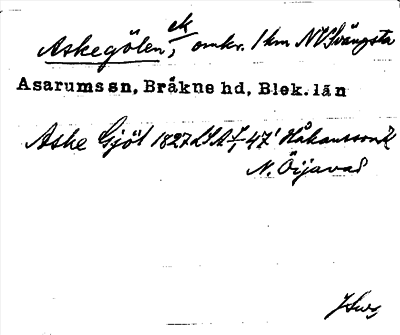 Askegölen, sk, omkr. 1 km NV Svängsta
Asarums sn, Bräkne hd, Blek. län
Aske Gjöl 1827 LSA 47' Håkanssons k
N. Öijavad